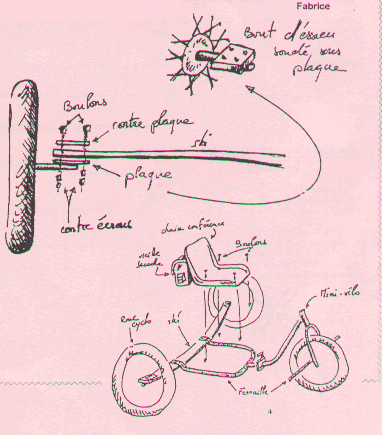 Fabrice
Bout d'éssieu
soudé sous
plaque
Boulons
contre plaque
ski
plaque
contre écrous
chaise conférence
Boulons
vieille
sacoche
Mini-vélo
roue
cyclo
ski
Ferraille
4